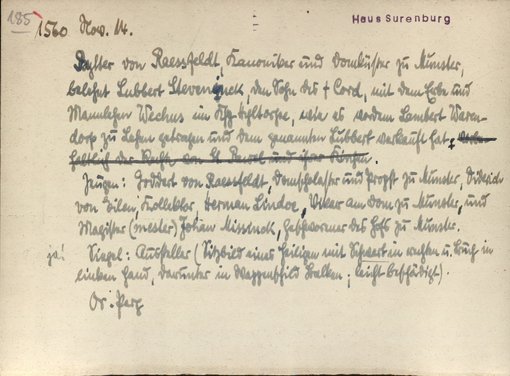 185
1560 Nov. 14.
Haus Surenburg
Rytter von Raessfeldt, Kanoniker und Domküster zu Münster,
belehnt Lubbert Stevenynck, den Sohn des † Cord, mit dem Erbe und
Mannlehen Wechus im Ksp. wie es vordem Lambert Waren-
dorp zu Lehen getragen und dem genannten Lubbert verkauft hat,
der Rechte von St. und
Zeugen: Goddert von Raessfeldt, Domscholaster und Propst zu Münster, Diderich
von Zilen, Kollektor, Herman Lindoe, Vikar am Dom zu Münster, und
Magister (mester) Johan Missinck, des Hofs zu Münster.
ja!
Siegel: Aussteller (Sitzbild eines Heiligen mit Schwert in rechten u. Buch in
linken Hand, darunter in Wappenschild Balken; leicht beschädigt).
Or. Perg